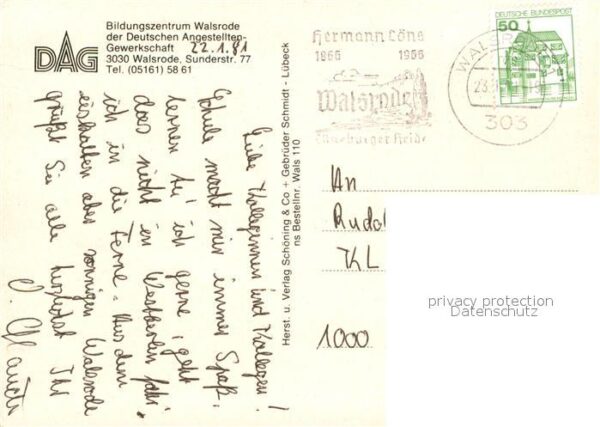 DAG
Bildungszentrum Walsrode
der Deutschen Angestellten-
Gewerkschaft 22.1.81
3030 Walsrode, Sunderstr. 77
Tel. (05161) 58 61
Liebe Kolleginnen und Kollegen!
Schule macht mir immer Spaß,
lernen tu' ich gerne, geht
das nicht in Westberlin, fahr'
ich in die Ferne. Aus dem
eiskalten aber sonnigen Walsrode
grüßt Sie alle herzlichst Ihr
Herst. u. Verlag Schöning & Co + Gebrüder Schmidt - Lübeck
ns Bestellnr. Wals 110
Hermann Löns
1866 1966
Walsrode
Lüneburger Heide
WALSRODE
23.
303
50
DEUTSCHE BUNDESPOST
An
Rudol
KL
1000
privacy protection
Datenschutz